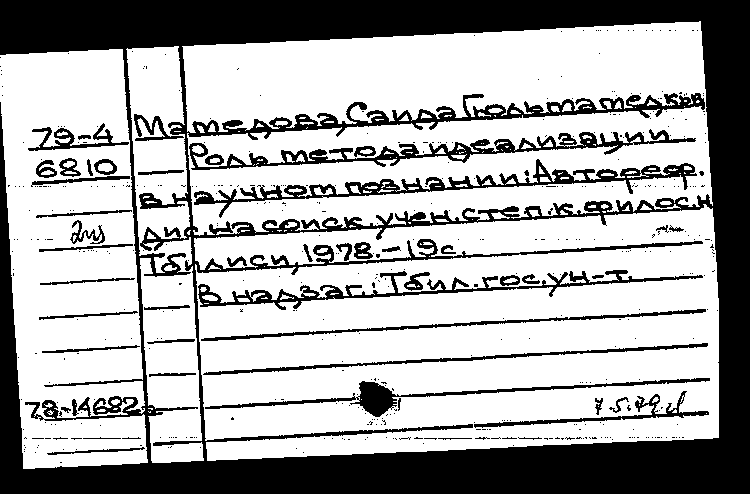 79-4
6810
2 из
Мамедова, Саида Гюльмамед кыз
Роль метода идеализации
в научном познании: Автореф.
дис. на соиск. учен. степ. к. филос. н
Тбилиси, 1978. - 19 с.
В надзаг.: Тбил. гос. ун-т.
78-14682
7.5.79